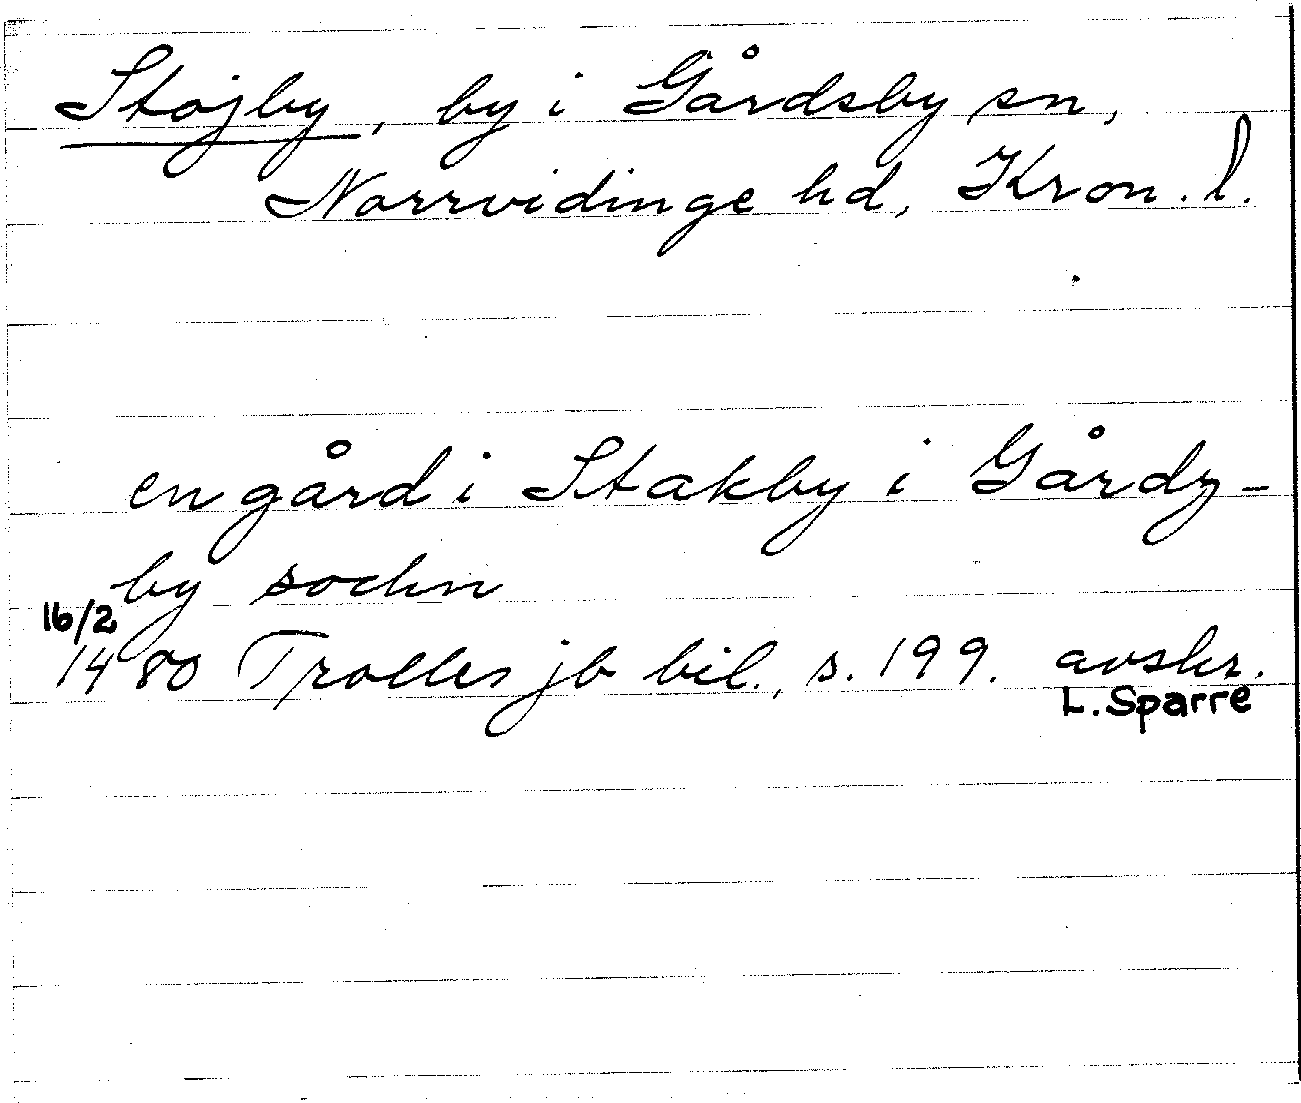 Stojby, by i Gårdsby sn,
Norrvidinge hd, Kron. l.
en gård i Stakby i Gårdz-
by sochn
16/2
1480 Trolles jb bil., s. 199. avskr.
L. Sparre